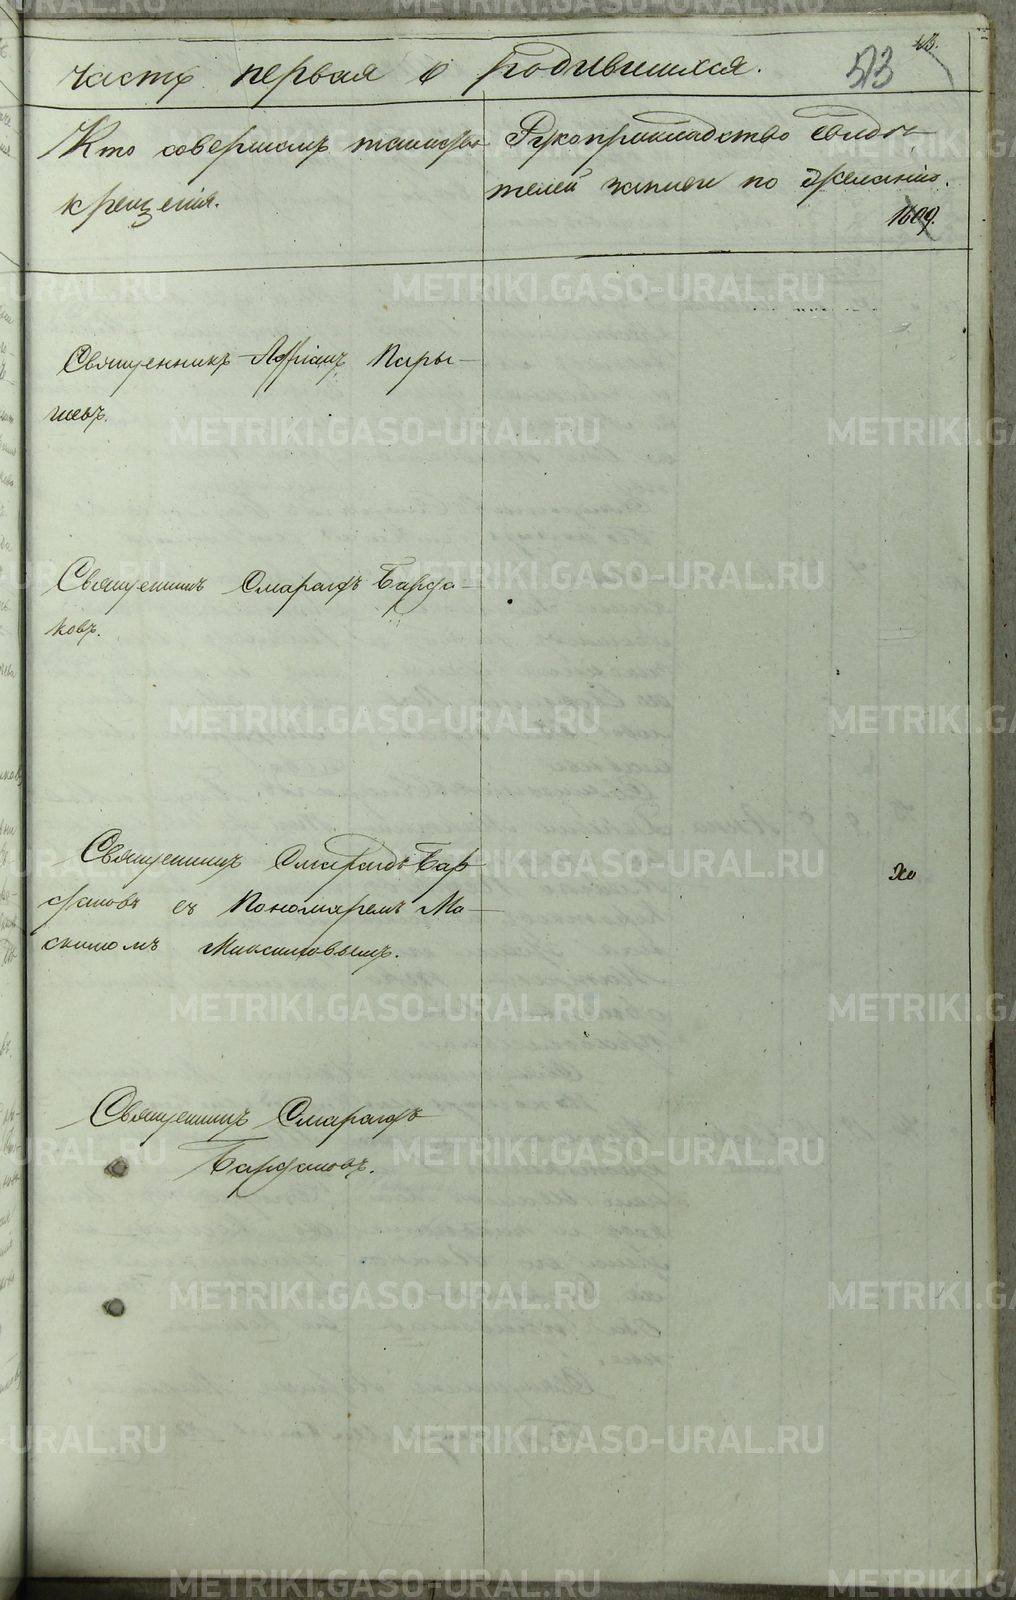 часть первая о родившихся.
513
Кто совершалъ таинство
крещенія.
Рукоприкладство свидѣ-
телей записи по желанію.
1609.
Священникъ Адріанъ Пары-
шевъ.
Священникъ Смарагдъ Барда-
ковъ.
Священникъ Смарагдъ Бар-
даковъ съ Пономаремъ Ма-
ксимомъ Максимовымъ.
Священникъ Смарагдъ
Бардаковъ.
METRIKI.GASO-URAL.RU